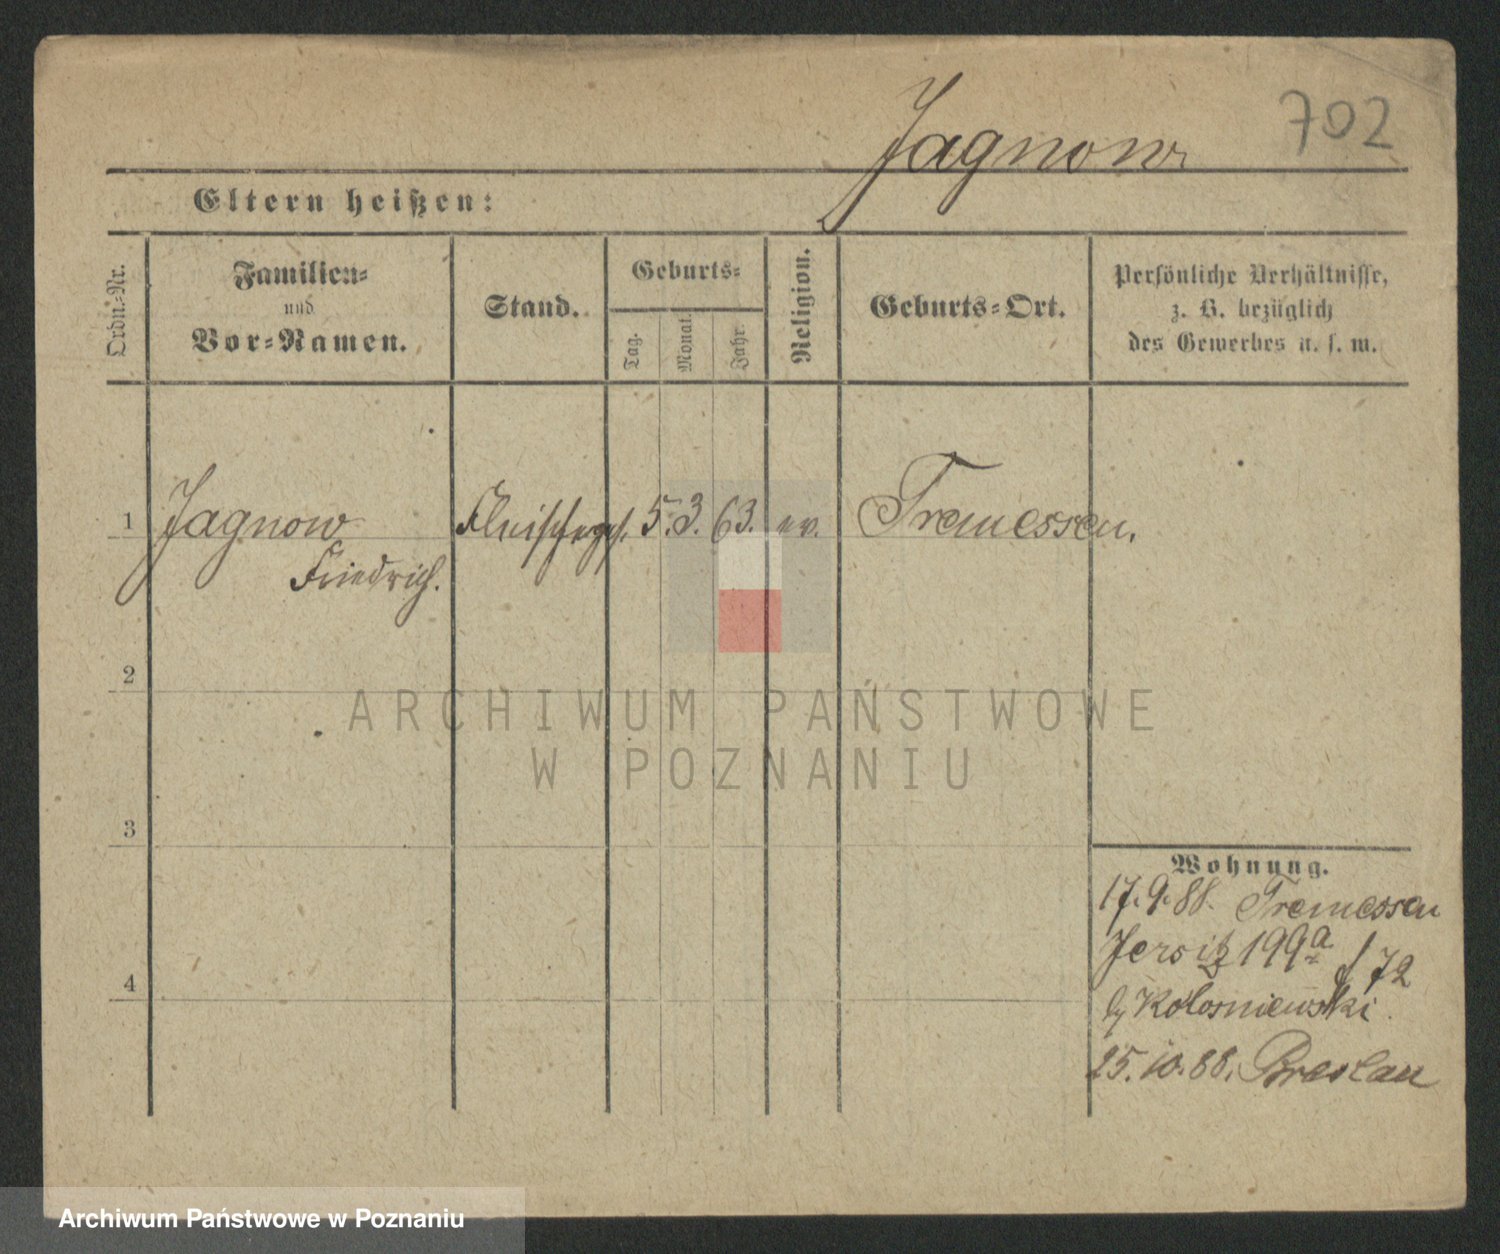 Jagnow
702
Eltern heißen:
Ordn.-Nr.
Familien-
und
Vor-Namen.
Stand.
Geburts-
Tag.
Monat.
Jahr.
Religion.
Geburts-Ort.
Persönliche Verhältnisse,
z. B. bezüglich
des Gewerbes u. s. w.
1 Jagnow Fleischerges. 5. 3. 63. ev. Tremessen.
Friedrich.
2
ARCHIWUM PAŃSTWOWE
W POZNANIU
3
Wohnung.
17.9.88. Tremessen
Jersitz 199a f 72
4
Kolosniewski.
25.10.88. Breslau
Archiwum Państwowe w Poznaniu